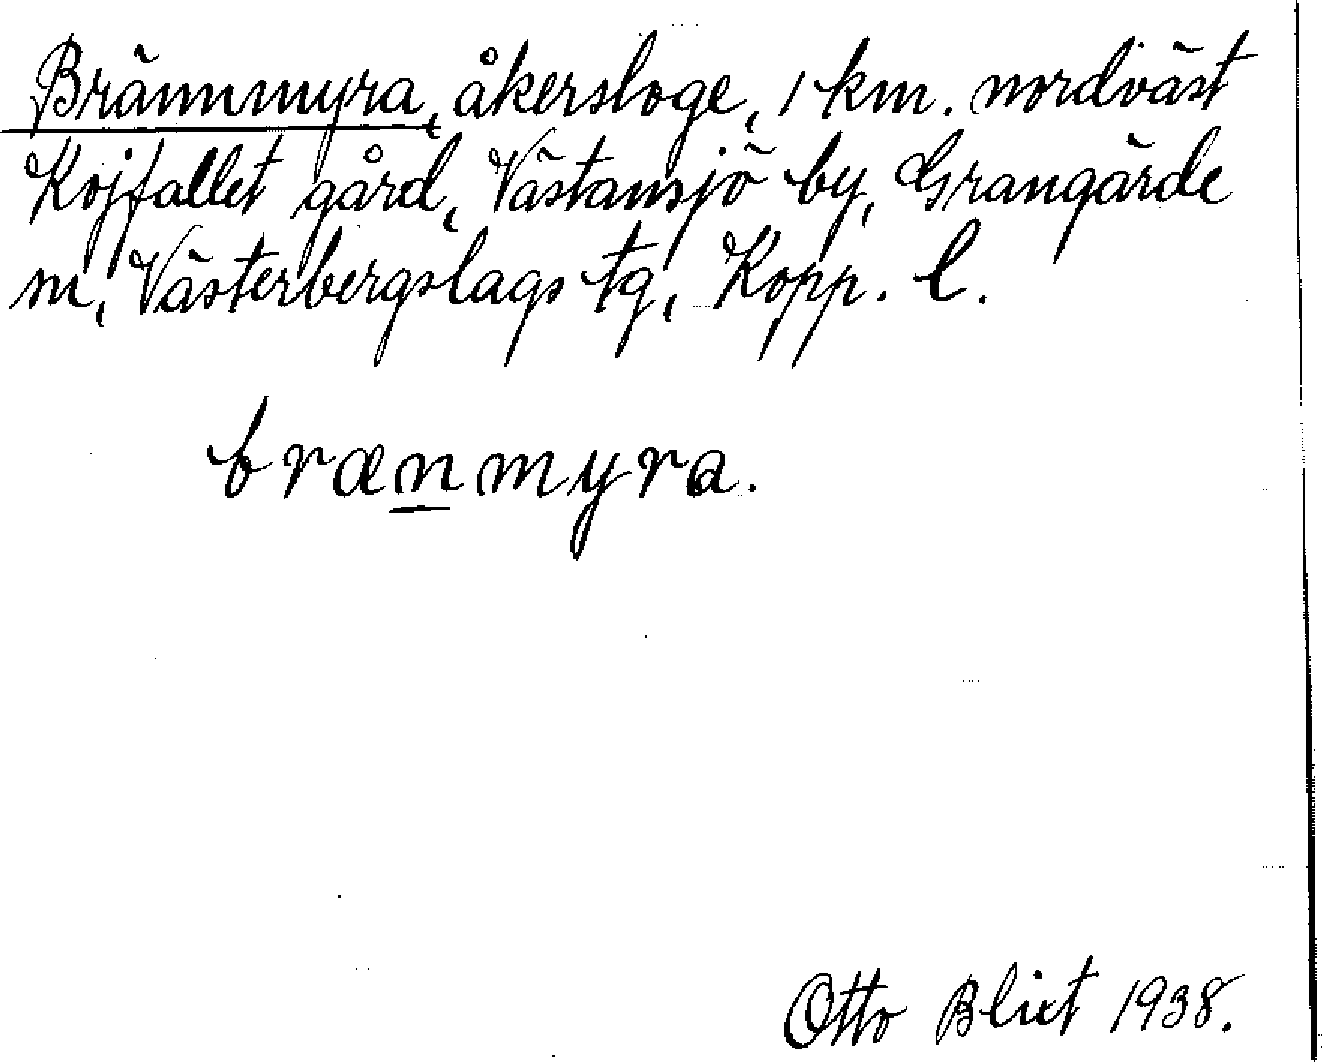 Brännmyra, åkersloge, 1 km. nordväst
Kojfallet gård, Västansjö by, Grangärde
m, Västerbergslags tg, Kopp. l.
brænmyra.
Otto Blixt 1938.